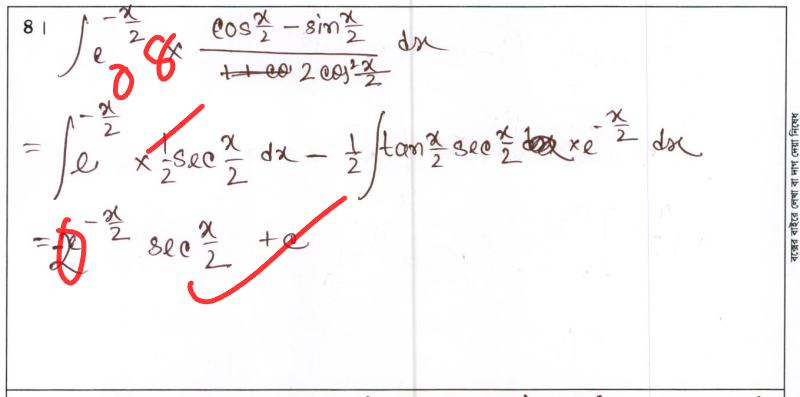 8| ∫ e^{-x/2} × \frac{cos x/2 - sin x/2}{2 cos² x/2} dx
08
= ∫ e^{-x/2} × 1/2 sec x/2 dx - 1/2 ∫ tan x/2 sec x/2 × e^{-x/2} dx
= e^{-x/2} sec x/2 + c
বক্সের বাইরে লেখা বা দাগ দেয়া নিষেধ